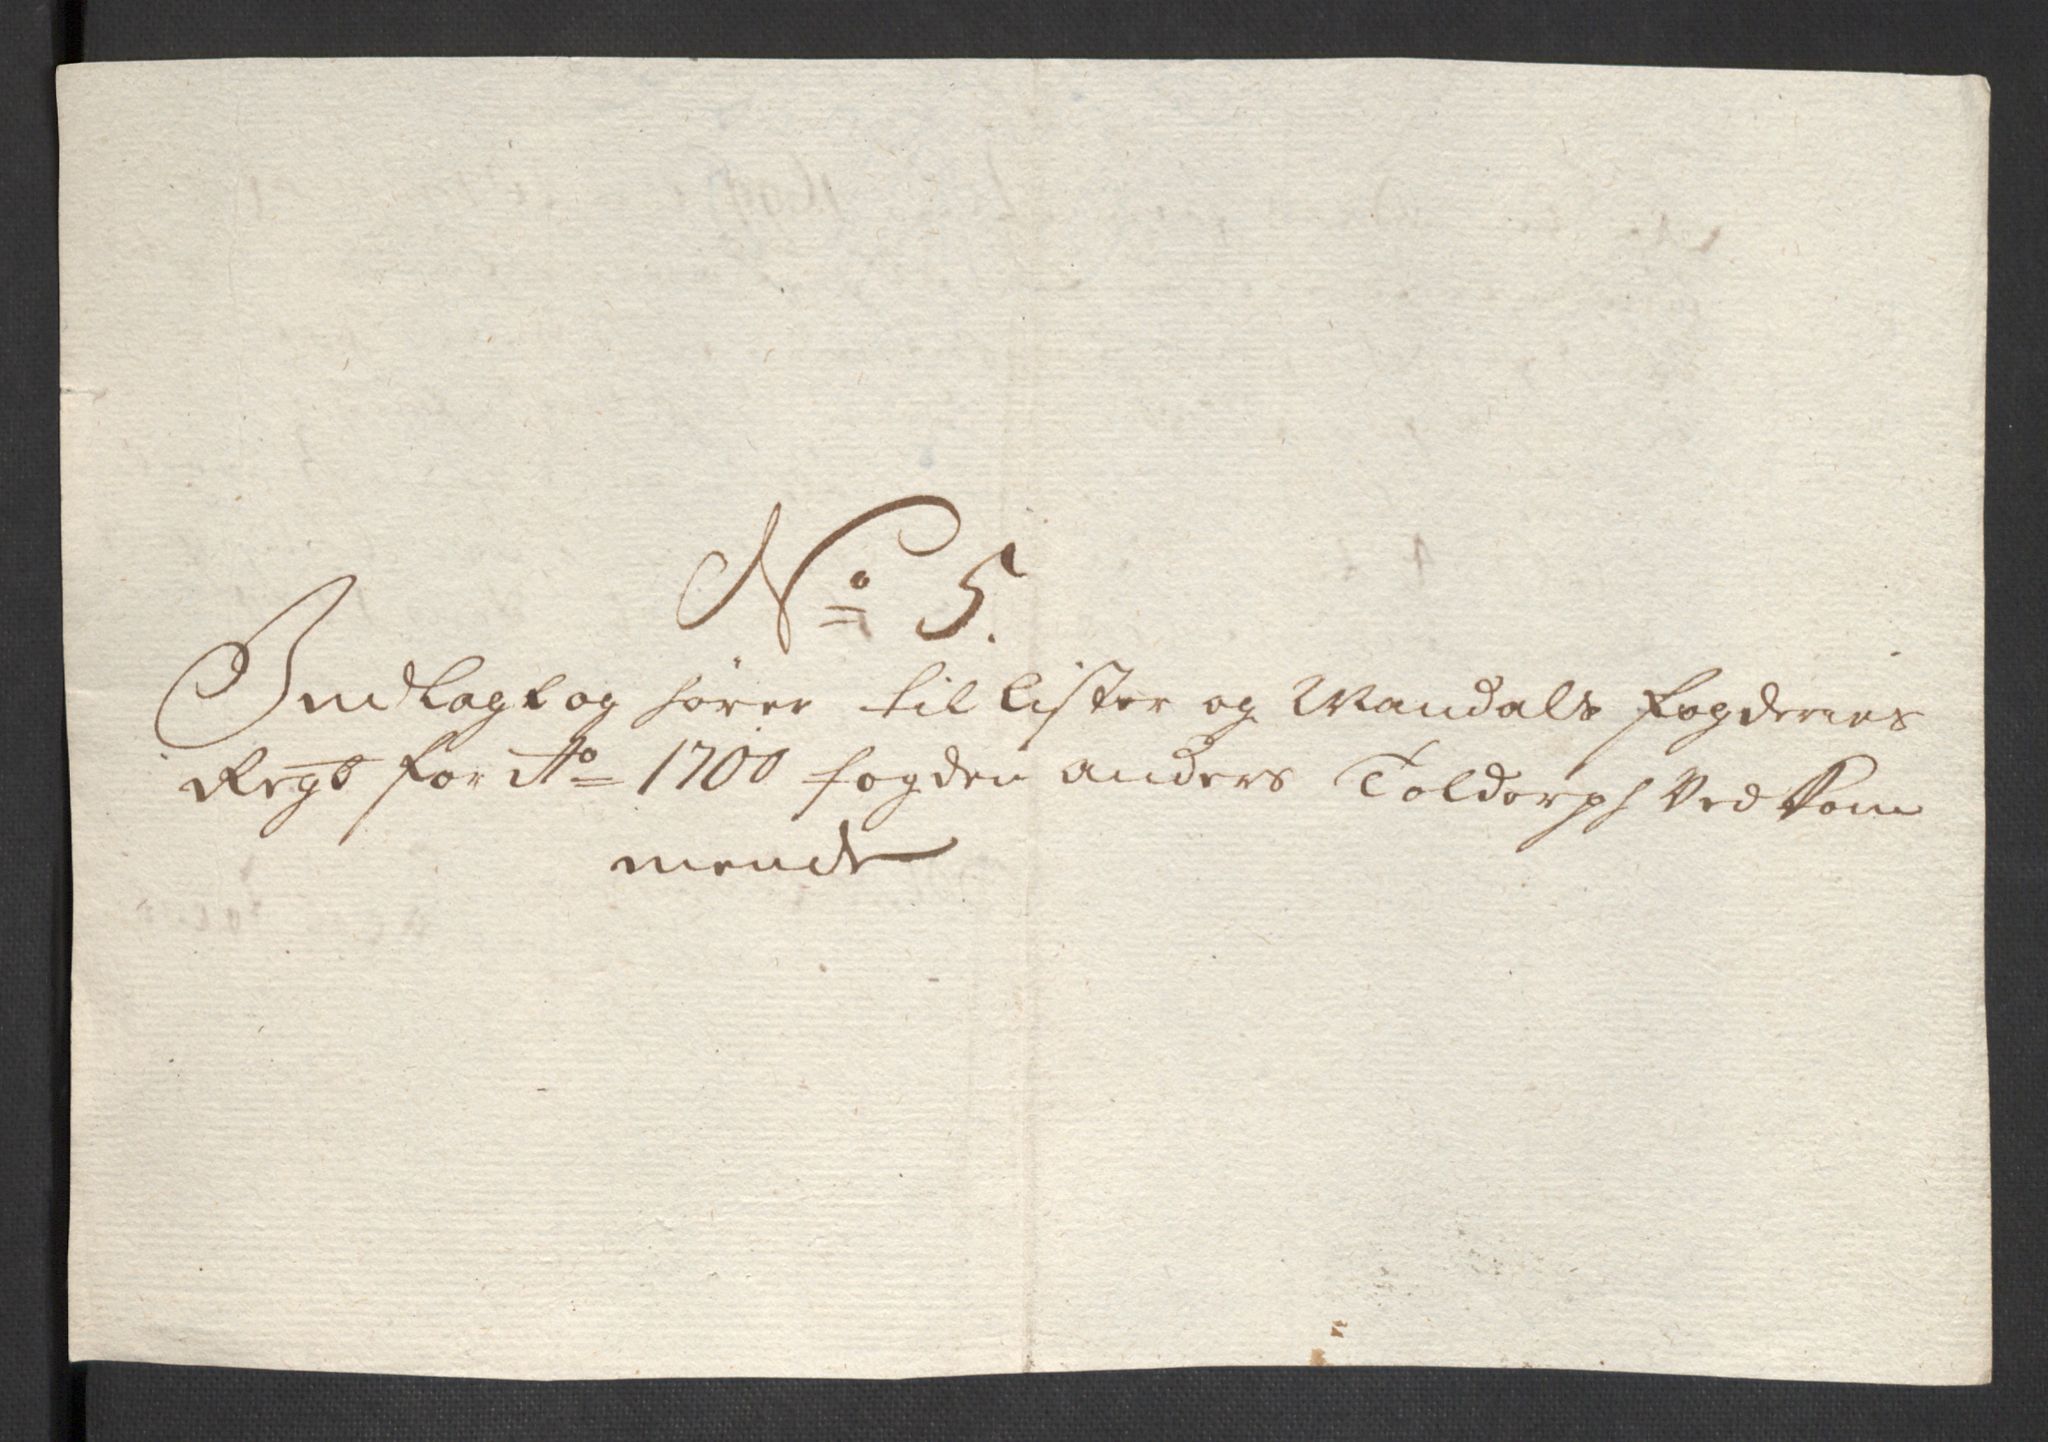 No 5.
Indlagt og hører til Lister og Mandals fogderies
Regb for Ao 1700 fogden Anders Toldorph Ved kom
mende